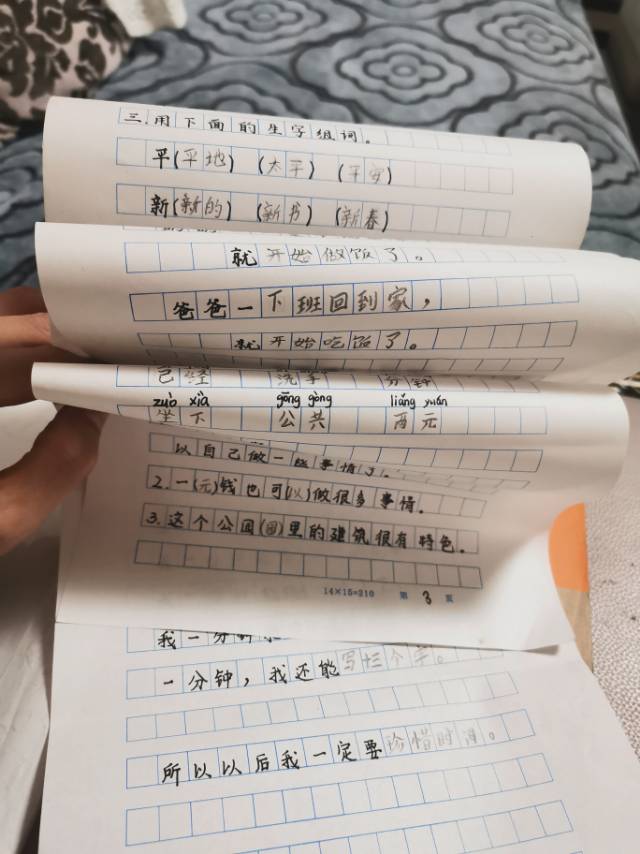 三.用下面的生字组词。
平(平地) (太平) (平安)
新(新的) (新书) (新春)
就开始做饭了。
爸爸一下班回到家，
就开始吃饭了。
已经 洗手 分钟
zuò xià gōng gòng liǎng yuán
坐下 公共 两元
以自己做一些事情了。
2.一(元)钱也可(以)做很多事情。
3.这个公园(园)里的建筑很有特色。
14×15=210 第 3 页
我一分钟
一分钟，我还能写十三个字。
所以以后我一定要珍惜时间。